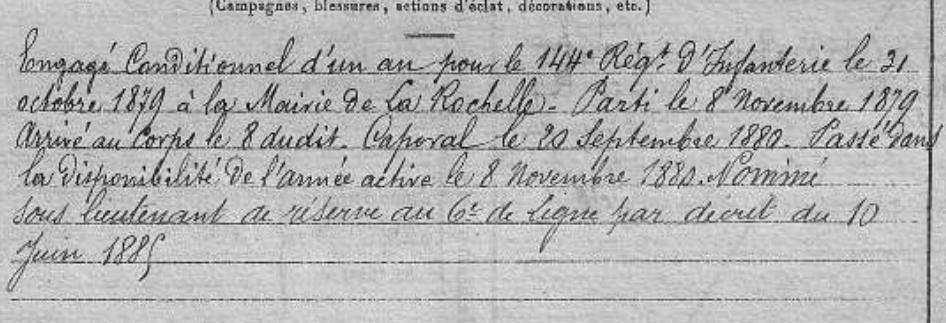 (Campagnes, blessures, actions d'éclat, décorations, etc.)
Engagé Conditionnel d'un an pour le 144e Régt d'Infanterie le 31
octobre 1879 à la Mairie de La Rochelle - Parti le 8 Novembre 1879
Arrivé au Corps le 8 dudit. Caporal le 20 Septembre 1880. Passé dans
la disponibilité de l'armée active le 8 Novembre 1880. Nommé
sous lieutenant de réserve au 6e de ligne par décret du 10
Juin 1885